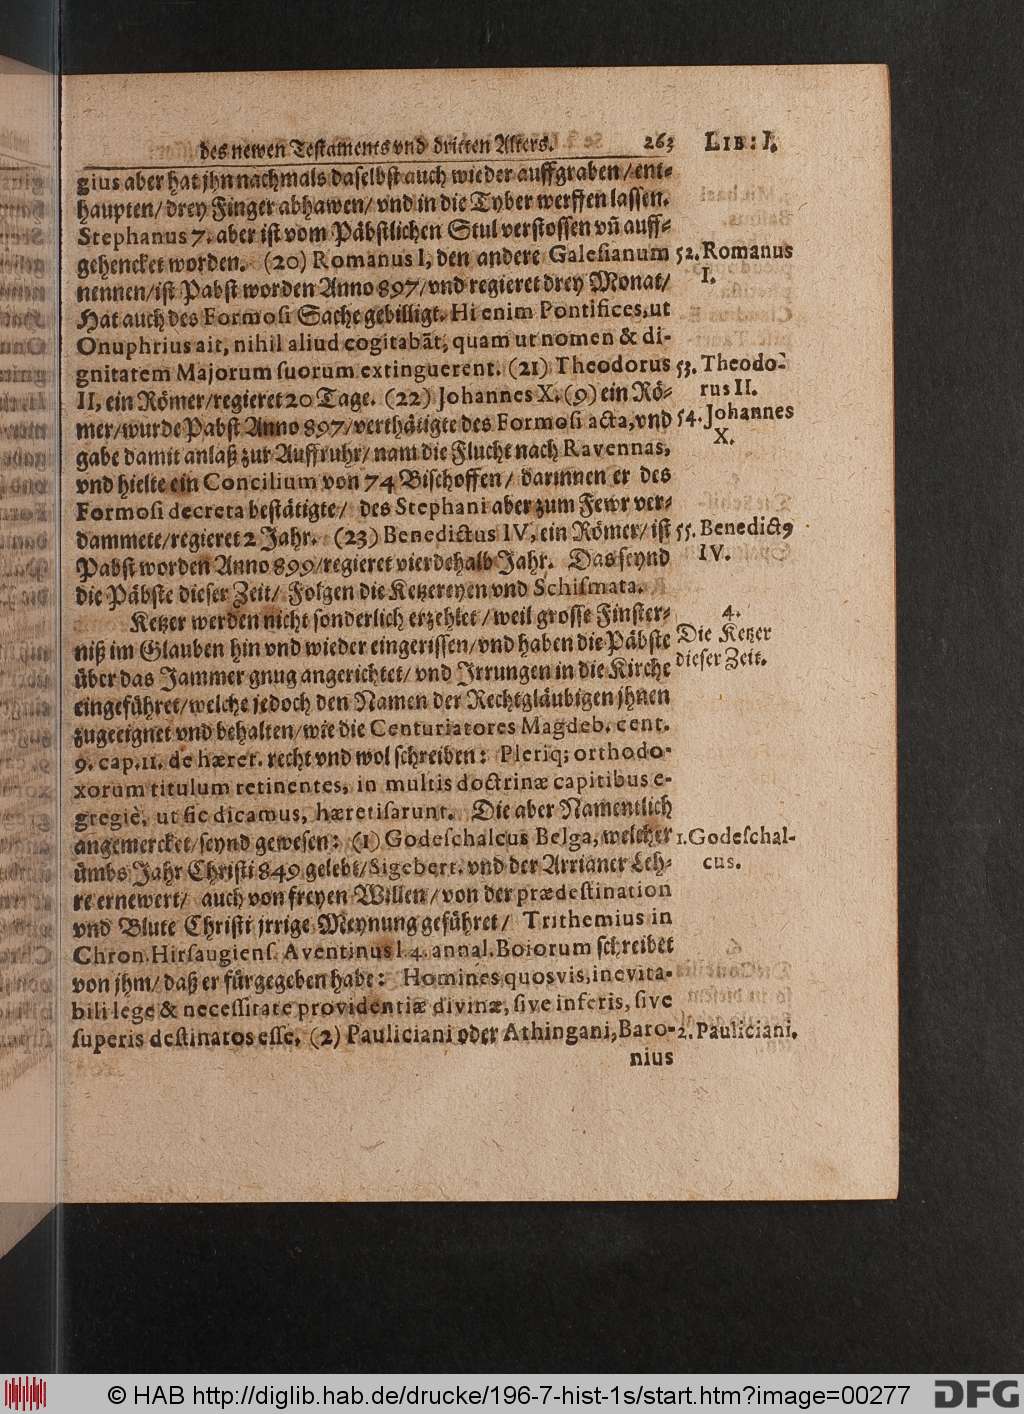 des newen Testaments vnd dritten Alters. 263 LIB: I.
gius aber hat jhn nachmals daſelbſt auch wieder auffgraben / ent-
haupten / drey Finger abhawen / vnd in die Tyber werffen laſſen.
Stephanus 7. aber iſt vom Päbſtlichen Stul verſtoſſen vñ auff-
gehencket worden. (20) Romanus I, den andere Galeſianum
52. Romanus
I.
nennen / iſt Pabſt worden Anno 897 / vnd regieret drey Monat /
Hat auch des Formoſi Sache gebilligt. Hi enim Pontifices, ut
Onuphrius ait, nihil aliud cogitabãt, quam ut nomen & di-
gnitatem Majorum ſuorum extinguerent. (21) Theodorus
53. Theodo-
rus II.
II, ein Römer / regieret 20 Tage. (22) Johannes X. (9) ein Rö-
mer / wurde Pabſt Anno 897 / verthätigte des Formoſi acta, vnd
54. Johannes
X.
gabe damit anlaß zur Auffruhr / nam die Flucht nach Ravennas,
vnd hielte ein Concilium von 74 Biſchoffen / darinnen er des
Formoſi decreta beſtätigte / des Stephani aber zum Fewr ver-
dammete / regieret 2 Jahr. (23) Benedictus IV, ein Römer / iſt
55. Benedictꝰ
IV.
Pabſt worden Anno 899 / regieret vierdehalb Jahr. Das ſeynd
die Päbſte dieſer Zeit / Folgen die Ketzereyen vnd Schiſmata.
Ketzer werden nicht ſonderlich erzehlet / weil groſſe Finſter-
4.
Die Ketzer
dieſer Zeit.
niß im Glauben hin vnd wieder eingeriſſen / vnd haben die Päbſte
über das Jammer gnug angerichtet / vnd Irrungen in die Kirche
eingeführet / welche jedoch den Namen der Rechtgläubigen jhnen
zugeeignet vnd behalten / wie die Centuriatores Magdeb. cent.
9. cap. 11. de hæret. recht vnd wol ſchreiben: Pleriq; orthodo-
xorum titulum retinentes, in multis doctrinæ capitibus e-
gregiè, ut ſic dicamus, hæretiſarunt. Die aber Namentlich
angemercket / ſeynd geweſen: (1) Godeſchalcus Belga, welcher
1. Godeſchal-
cus.
ümbs Jahr Chriſti 849 gelebt / Sigebert. vnd der Arrianer Leh-
re ernewert / auch von freyen Willen / von der prædeſtination
vnd Blute Chriſti jrrige Meynung geführet / Trithemius in
Chron. Hirſaugienſ. Aventinus l. 4. annal. Boiorum ſchreibet
von jhm / daß er fürgegeben habe: Homines quosvis, inevita-
bili lege & neceſſitate providentiæ divinæ, ſive inferis, ſive
ſuperis deſtinatos eſſe. (2) Pauliciani oder Athingani, Baro-
2. Pauliciani.
nius
© HAB http://diglib.hab.de/drucke/196-7-hist-1s/start.htm?image=00277 DFG